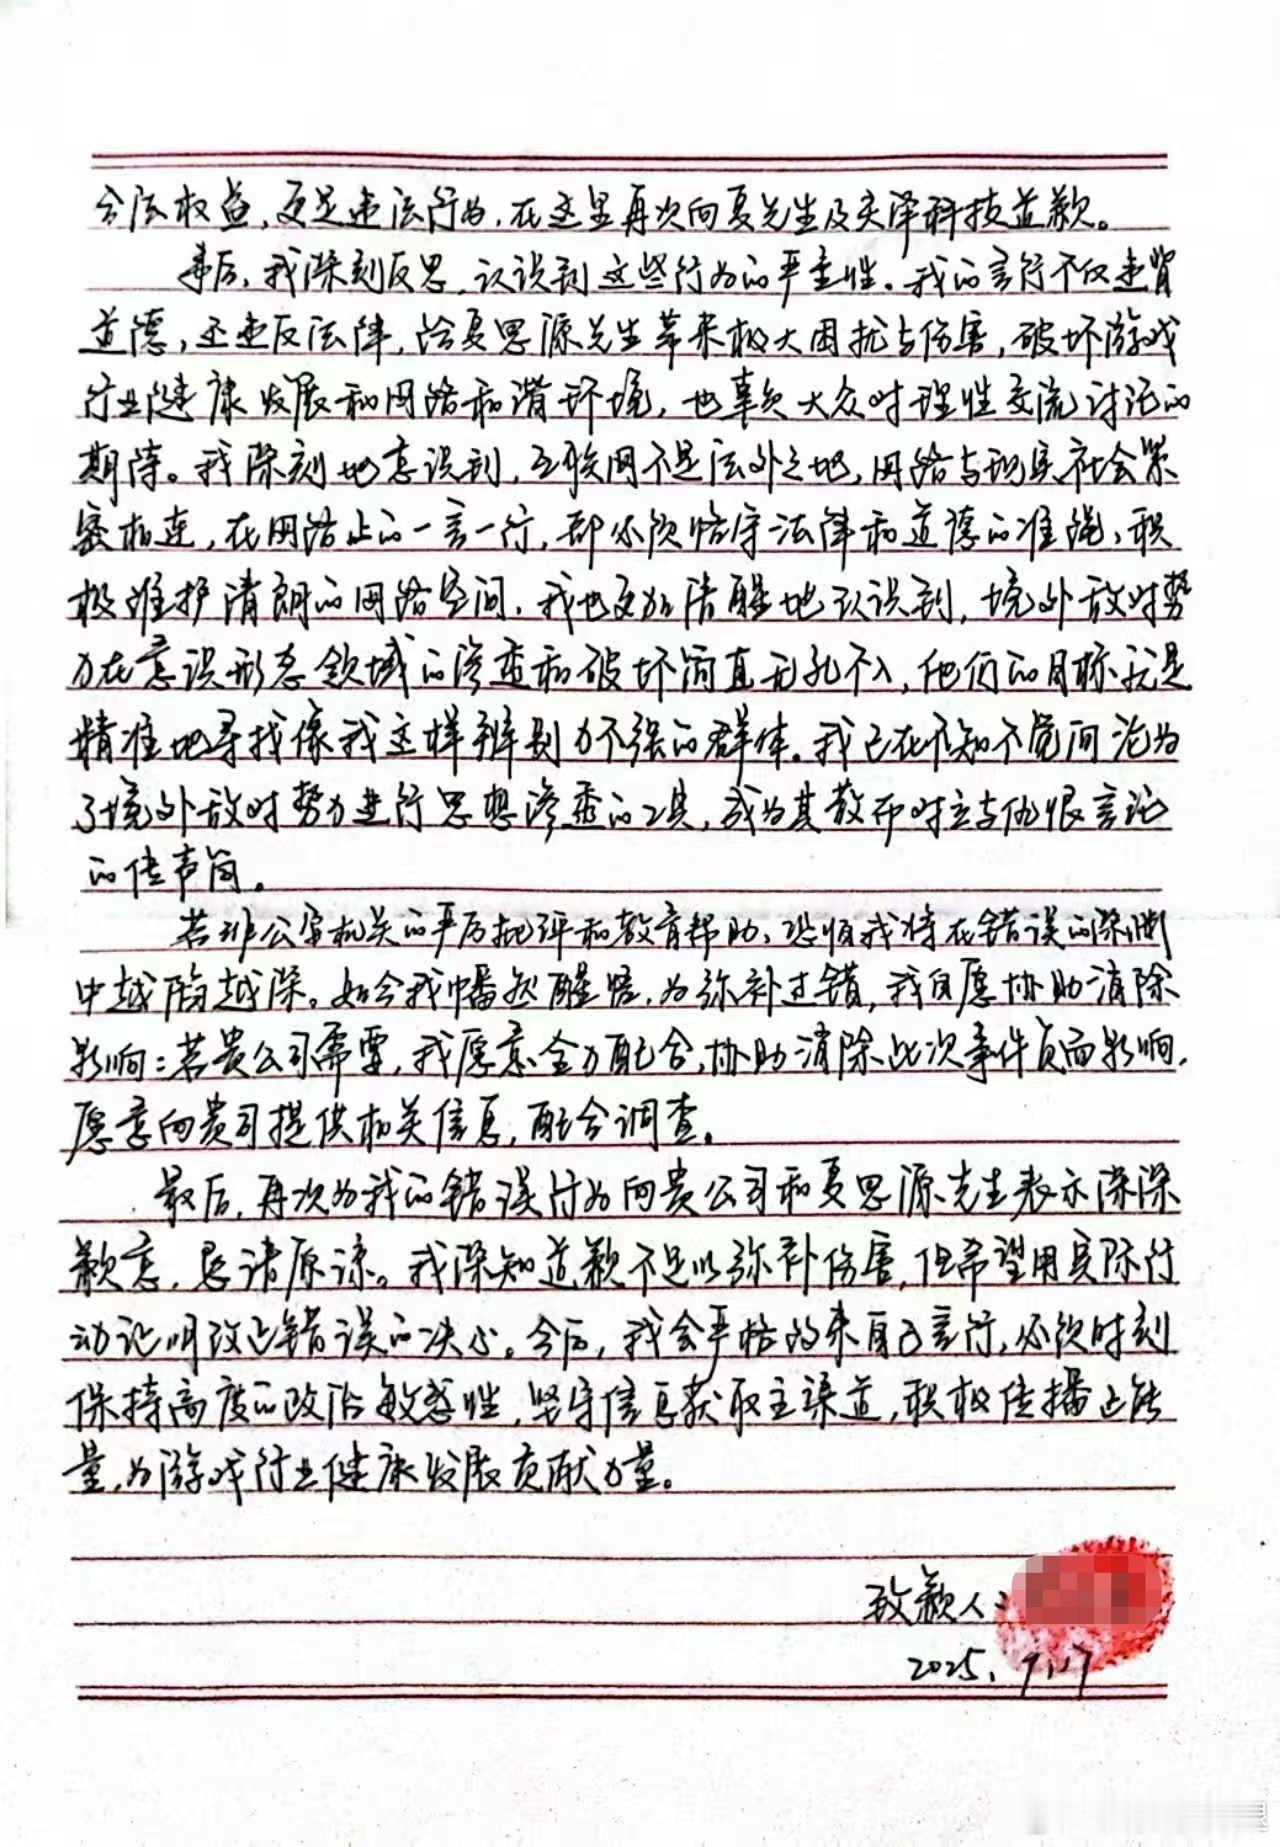 合法权益,更是违法行为,在这里再次向夏先生及灵泽科技道歉。
事后,我深刻反思,认识到这些行为的严重性。我的言行不仅违背
道德,还违反法律,给夏思源先生带来极大困扰与伤害,破坏游戏
行业健康发展和网络和谐环境,也辜负大众对理性交流讨论的
期待。我深刻地意识到,互联网不是法外之地,网络与现实社会紧
密相连,在网络上的一言一行,都必须恪守法律和道德的准绳,积
极维护清朗的网络空间。我也更加清醒地认识到,境外敌对势
力在意识形态领域的渗透和破坏简直无孔不入,他们的目标就是
精准地寻找像我这样辨别力不强的群体。我已在不知不觉间沦为
了境外敌对势力进行思想渗透的工具,成为其散布对立与仇恨言论
的传声筒。
若非公安机关的严厉批评和教育帮助,恐怕我将在错误的深渊
中越陷越深。如今我幡然醒悟,为弥补过错,我自愿协助消除
影响:若贵公司需要,我愿意全力配合,协助消除此次事件负面影响,
愿意向贵司提供相关信息,配合调查。
最后,再次为我的错误行为向贵公司和夏思源先生表示深深
歉意,恳请原谅。我深知道歉不足以弥补伤害,但希望用实际行
动证明改正错误的决心。今后,我会严格约束自己言行,必须时刻
保持高度的政治敏感性,坚守信息获取主渠道,积极传播正能
量,为游戏行业健康发展贡献力量。
致歉人:
2025.9.17